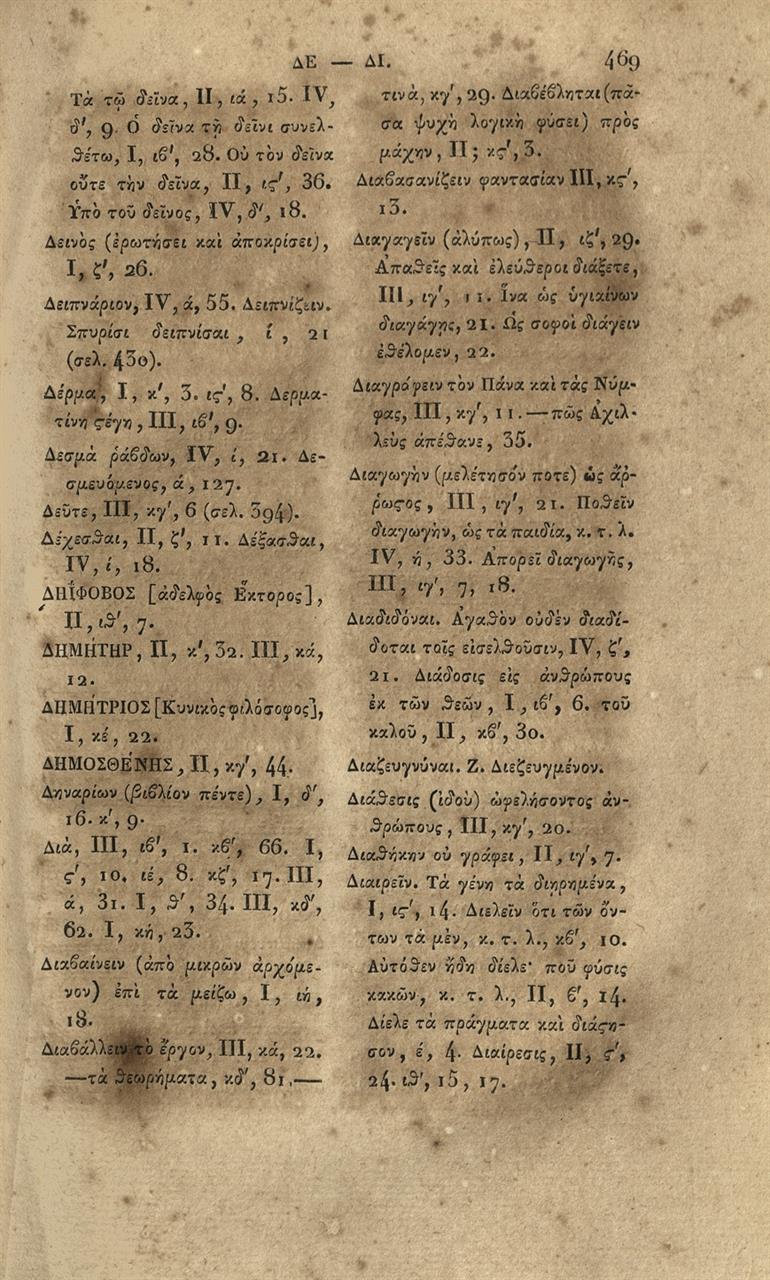 ΔΕ — ΔΙ. 469
Τὰ τῷ δεῖνα, II, ιά, 15. IV,
δ', 9. Ὁ δεῖνα τῇ δεῖνι συνελ-
θέτω, I, ιϐ', 28. Οὐ τὸν δεῖνα
οὔτε τὴν δεῖνα, II, ις', 36.
Ὑπὸ τοῦ δεῖνος, IV, δ', 18.
Δεινὸς (ἐρωτήσει καὶ ἀποκρίσει),
I, ζ', 26.
Δειπνάριον, IV, ά, 55. Δειπνίζειν.
Σπυρίσι δειπνίσαι, ί, 21
(σελ. 430).
Δέρμα, I, κ', 3. ις', 8. Δερμα-
τίνη ϛέγη, III, ιϐ', 9.
Δεσμὰ ῥάϐδων, IV, ί, 21. Δε-
σμευόμενος, ά, 127.
Δεῦτε, III, κγ', 6 (σελ. 394).
Δέχεσθαι, II, ζ', 11. Δέξασθαι,
IV, ί, 18.
ΔΗΪ́ΦΟΒΟΣ [ἀδελφὸς Ἕκτορος],
II, ιθ', 7.
ΔΗΜΉΤΗΡ, II, κ', 32. III, κά,
12.
ΔΗΜΉΤΡΙΟΣ [Κυνικὸς φιλόσοφος],
I, κέ, 22.
ΔΗΜΟΣΘΈΝΗΣ, II, κγ', 44.
Δηναρίων (βιϐλίον πέντε), I, δ',
16. κ', 9.
Διὰ, III, ιϐ', 1. κϐ', 66. I,
ϛ', 10. ιέ, 8. κζ', 17. III,
ά, 31. I, θ', 34. III, κδ',
62. I, κή, 23.
Διαϐαίνειν (ἀπὸ μικρῶν ἀρχόμε-
νον) ἐπὶ τὰ μείζω, I, ιή,
18.
Διαϐάλλειν τὸ ἔργον, III, κά, 22.
—τὰ θεωρήματα, κδ', 81.—
τινὰ, κγ', 29. Διαϐέϐληται (πᾶ-
σα ψυχὴ λογικὴ φύσει) πρὸς
μάχην, II; κϛ', 3.
Διαϐασανίζειν φαντασίαν III, κϛ',
13.
Διαγαγεῖν (ἀλύπως), II, ιζ', 29.
Ἀπαθεῖς καὶ ἐλεύθεροι διάξετε,
III, ιγ', 11. Ἵνα ὡς ὑγιαίνων
διαγάγῃς, 21. Ὡς σοφοὶ διάγειν
ἐθέλομεν, 22.
Διαγράφειν τὸν Πάνα καὶ τὰς Νύμ-
φας, III, κγ', 11.—πῶς Ἀχιλ-
λεὺς ἀπέθανε, 35.
Διαγωγὴν (μελέτησόν ποτε) ὡς ἄῤ-
ῥωϛος, III, ιγ', 21. Ποθεῖν
διαγωγὴν, ὡς τὰ παιδία, κ. τ. λ.
IV, ή, 33. Ἀπορεῖ διαγωγῆς,
III, ιγ', 7, 18.
Διαδιδόναι. Ἀγαθὸν οὐδὲν διαδί-
δοται τοῖς εἰσελθοῦσιν, IV, ζ',
21. Διάδοσις εἰς ἀνθρώπους
ἐκ τῶν θεῶν, I, ιϐ', 6. τοῦ
καλοῦ, II, κϐ', 30.
Διαζευγνύναι. Ζ. Διεζευγμένον.
Διάθεσις (ἰδοὺ) ὠφελήσοντος ἀν-
θρώπους, III, κγ', 20.
Διαθήκην οὐ γράφει, II, ιγ', 7.
Διαιρεῖν. Τὰ γένη τὰ διῃρημένα,
I, ιϛ', 14. Διελεῖν ὅτι τῶν ὄν-
των τὰ μὲν, κ. τ. λ., κϐ', 10.
Αὐτόθεν ἤδη δίελε· ποῦ φύσις
κακῶν, κ. τ. λ., II, ϐ', 14.
Δίελε τὰ πράγματα καὶ διάϛη-
σον, έ, 4. Διαίρεσις, II, ϛ',
24. ιθ', 15, 17.